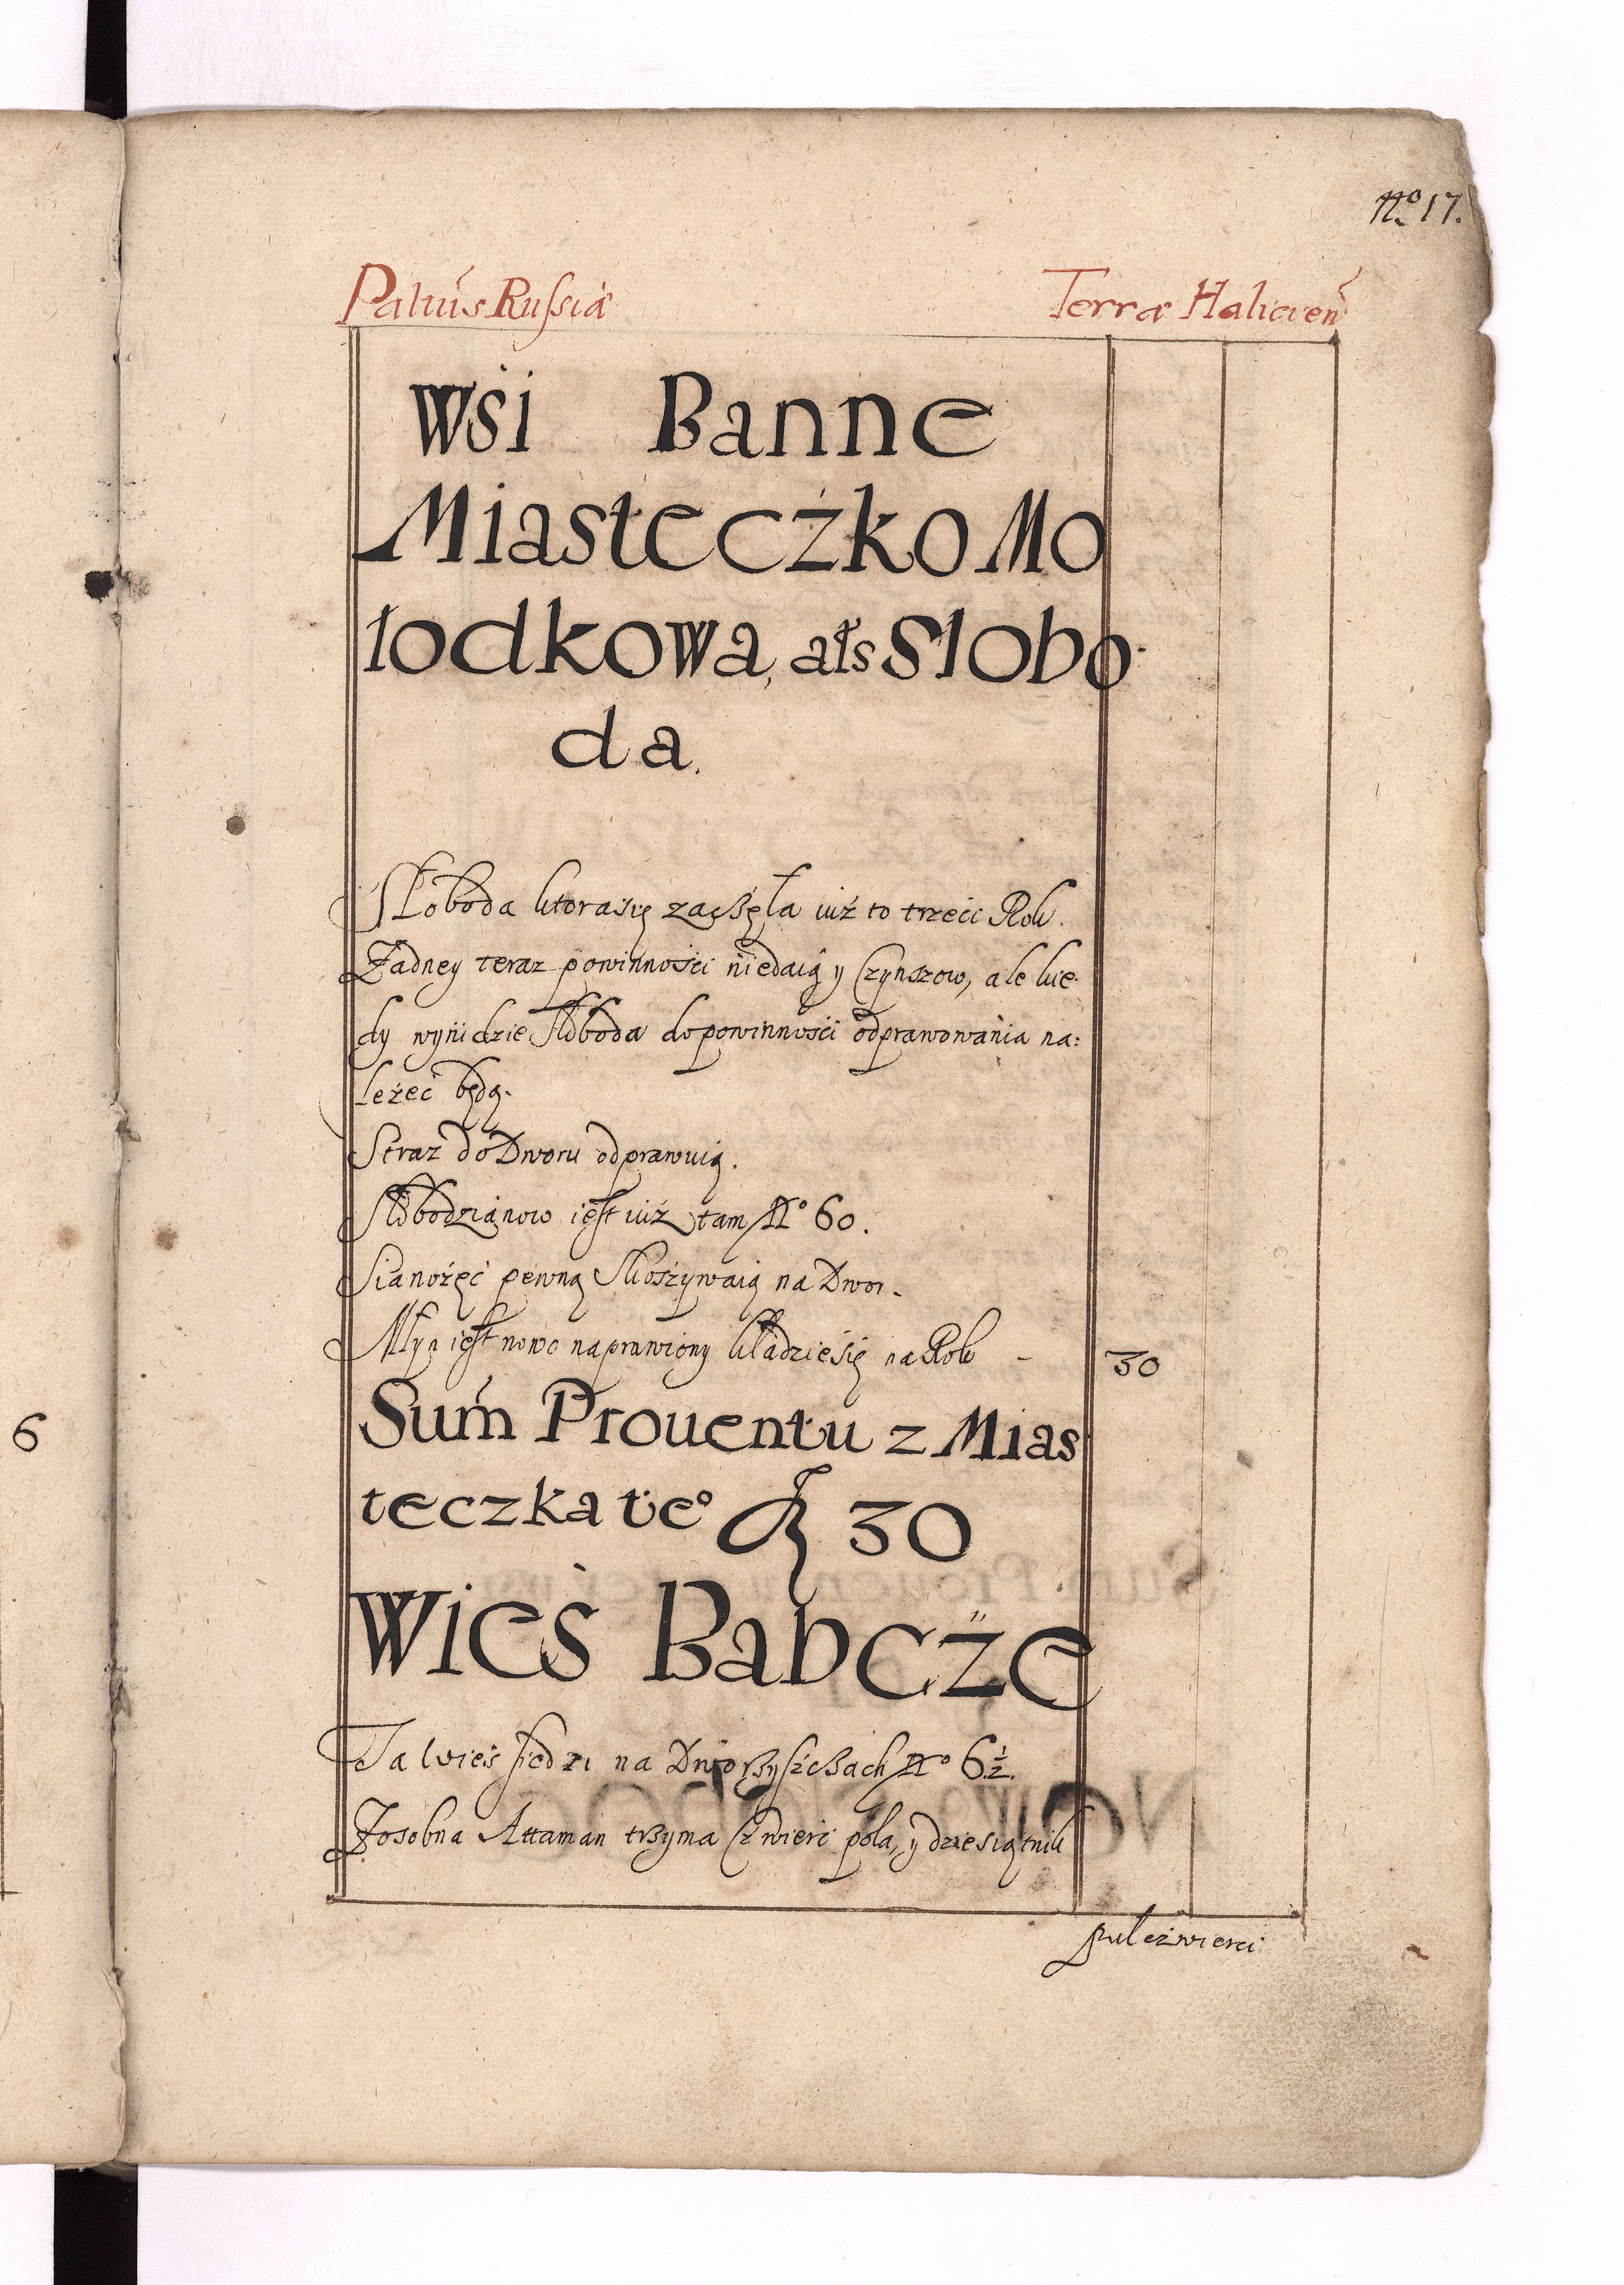 No 17.
Paltús Russiæ Terræ Halicien
Wśi Banne
Miasteczko Mo
łodkowa, ałs Słobo
da.
Słoboda ktora się zaczęła iuż to trzeci Rok.
Żadney teraz powinności niedaią y Czynszow, ale kie
dy wynidzie Słoboda do powinności odprawowania na:
leżeć będą.
Straz do Dworu odprawuią.
Słobodzianow iest iuż tam No 60.
Sianożęć pewną Skoszywaią na Dwor.
Młyn iest nowo naprawiony kładzie się na Rok - 30
Sum Prouentu z Mias
teczka te° 30
Wieś Babcze
Ta wieś siedzi na Dworzyszczach No 6 1/2.
Zosobna Attaman trzyma czwierć pola, y dziesiątnik
pułczwierci
6